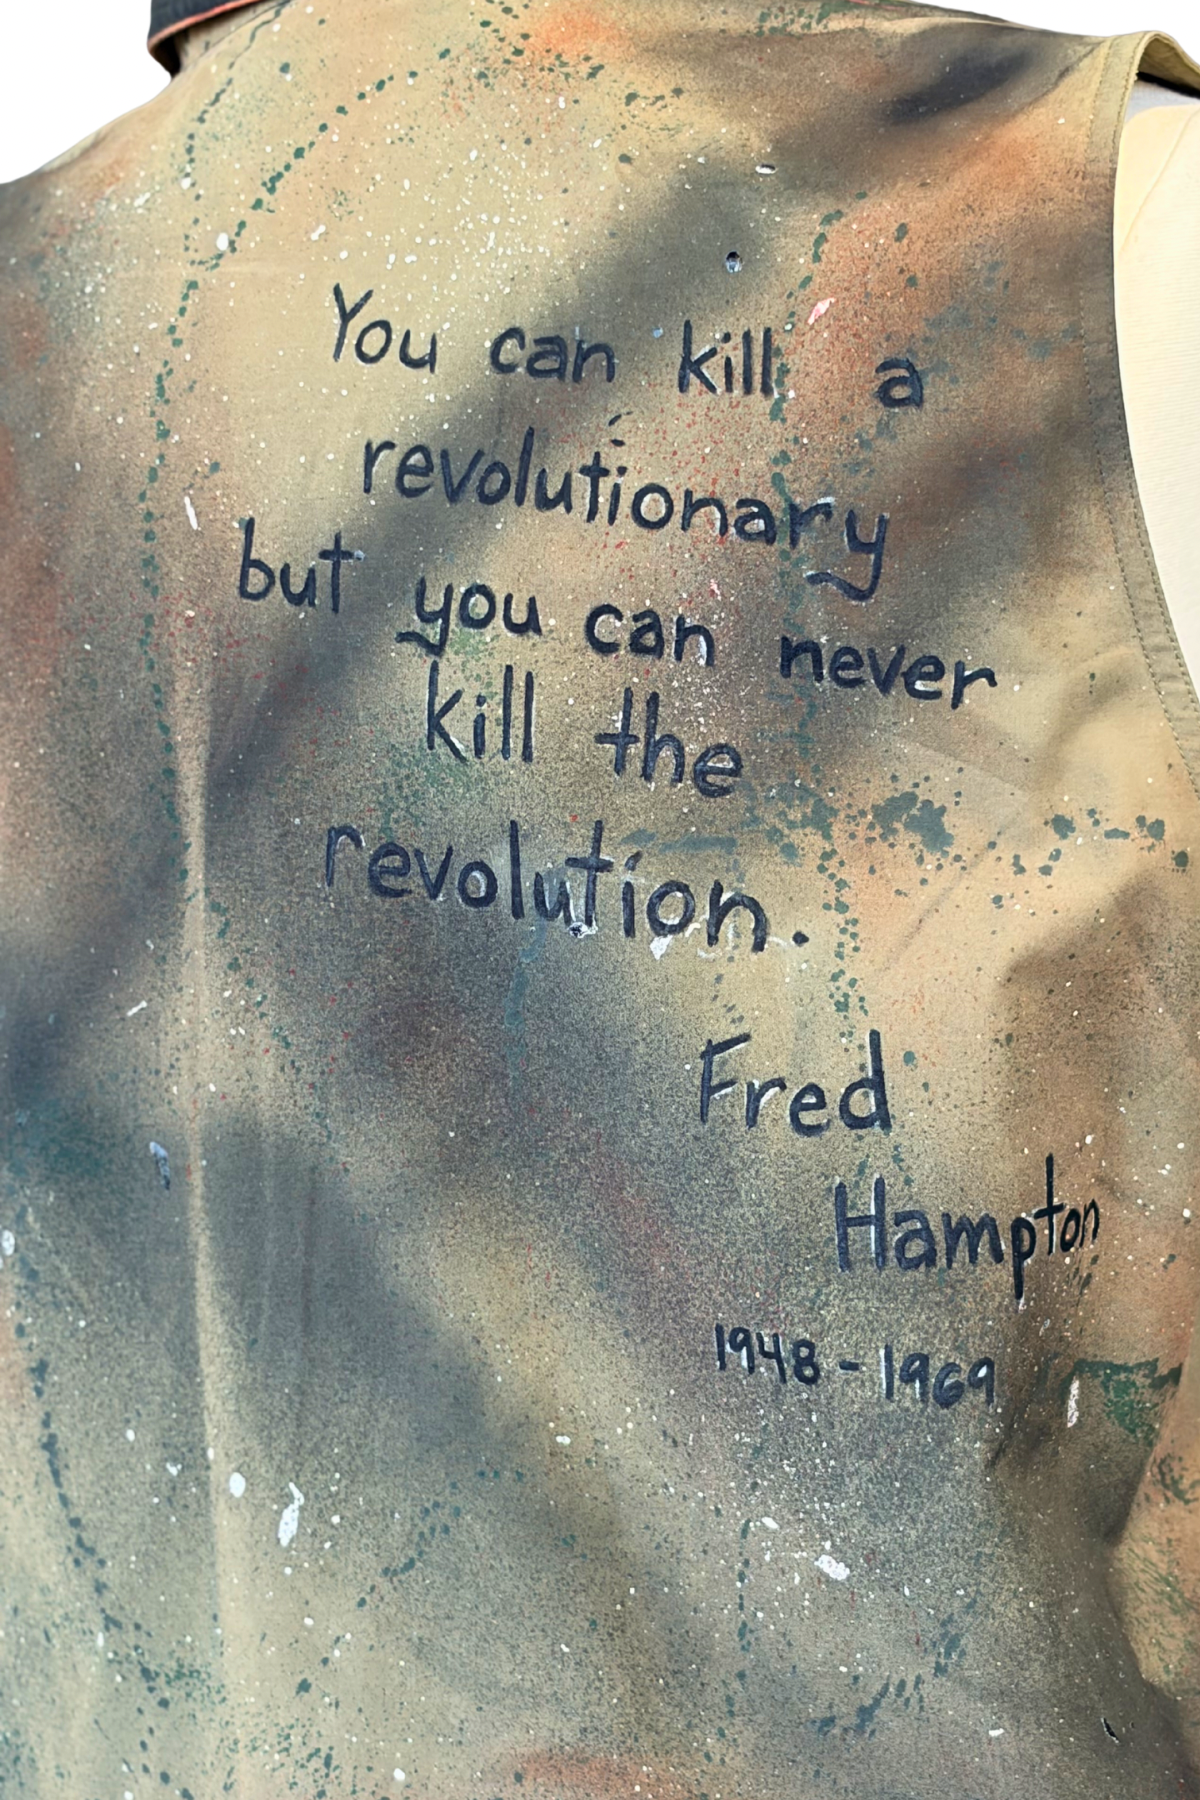 You can kill a
revolutionary
but you can never
kill the
revolution.
Fred
Hampton
1948-1969